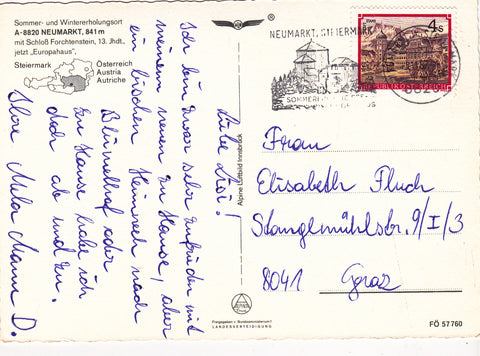 Sommer- und Wintererholungsort
A-8820 NEUMARKT, 841 m
mit Schloß Forchtenstein, 13. Jhdt.,
jetzt „Europahaus".
Steiermark
Österreich
Austria
Autriche
Liebe Lisi!
Ich bin zwar sehr zufrieden mit
meinem neuen zu Hause, aber
ein bischen Heimweh nach
Blümelhof oder
zu Hause habe ich
doch ab und zu.
Ihre Mela Mann D.
Alpine Luftbild Innsbruck
NEUMARKT, STEIERMARK
SOMMER
8820
4 S
REPUBLIK ÖSTERREICH
Frau
Elisabeth Fluch
Stanglmühlstr. 9/I/3
8041 Graz
Freigegeben v. Bundesministerium f.
LANDESVERTEIDIGUNG
FÖ 57760